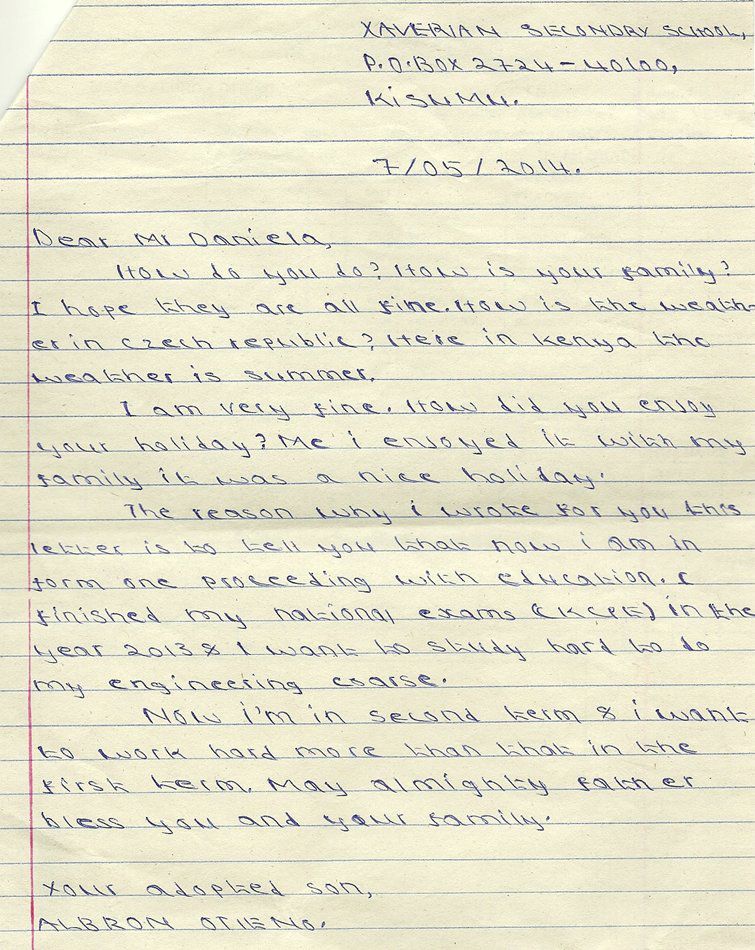 XAVERIAN SECONDRY SCHOOL,
P.O.BOX 2724-40100,
KISUMU.
7/05/2014.
Dear Mr Daniela,
How do you do? How is your family?
I hope they are all fine. How is the weath-
er in czech republic? Here in kenya the
weather is summer.
I am very fine. How did you enjoy
your holiday? Me i enjoyed it with my
family it was a nice holiday.
The reason why i wrote for you this
letter is to tell you that now i am in
form one proceeding with education. I
finished my national exams (KCPE) in the
year 2013 & I want to study hard to do
my engineering coarse.
Now i'm in second term & i want
to work hard more than that in the
first term. May almighty father
bless you and your family.
Your adopted son,
ALBRON OTIENO.